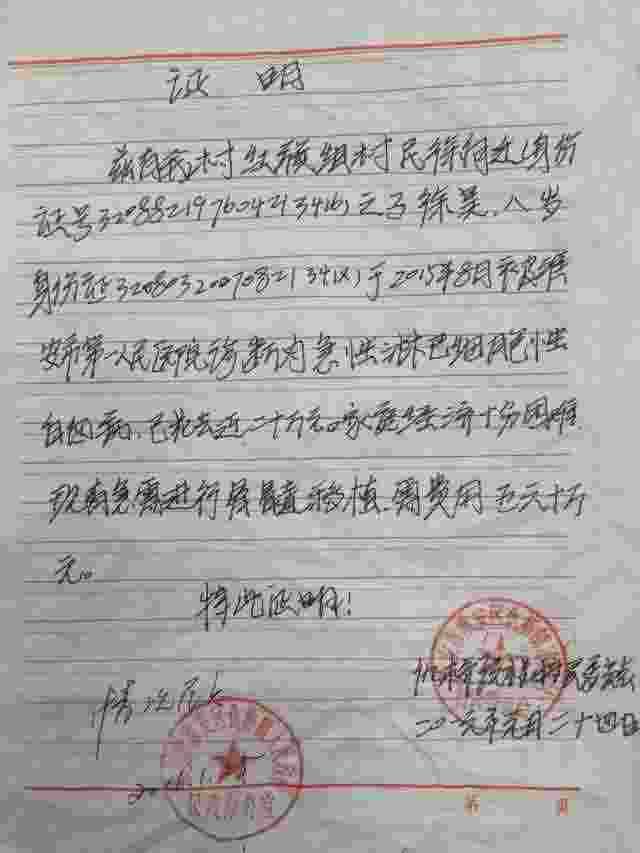 证 明
兹有我村 组村民徐 (身份
证号320882197604213416)之子徐昊,八岁
身份证320803200708213418)于2015年8月 淮
安市第一人民医院诊断为急性淋巴细胞性
白血病,已花去近二十万元。家庭经济十分困难
现 急需进行骨髓移植,需费用五六十万
元。
特此证明!
村民委员会
情况属实
二〇一六年元月二十四日
2016.1.
民政服务
第 页